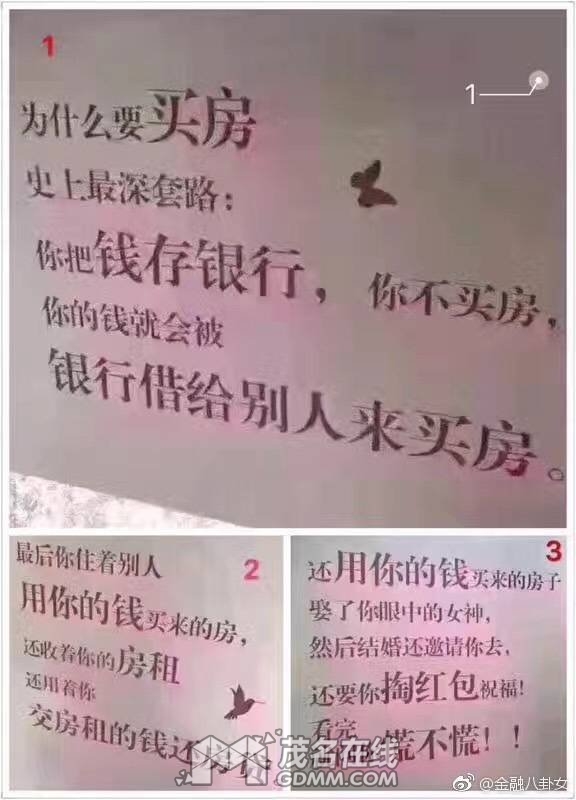 1
1
为什么要买房
史上最深套路：
你把钱存银行，你不买房，
你的钱就会被
银行借给别人来买房。
2
最后你住着别人
用你的钱买来的房，
还收着你的房租
还用着你
交房租的钱还房贷
3
还用你的钱买来的房子
娶了你眼中的女神，
然后结婚还邀请你去，
还要你掏红包祝福！
看完
慌不慌！！
茂名在线
GDMM.COM
@金融八卦女